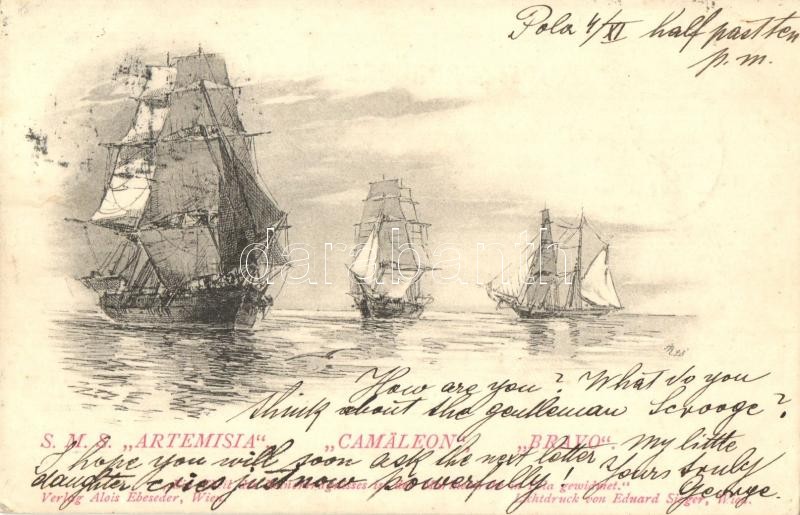 Pola 4/XI half past ten
p.m.
darabanth
How are you? What do you
think about the gentleman Scrooge?
S. M. S. „ARTEMISIA“, „CAMÄLEON“, „BRAVO“
I hope you will soon ask the next letter. My little
daughter cries just now powerfully! Yours truly
George.
gewidmet.“
Verlag Alois Ebeseder, Wien. Lichtdruck von Eduard Sieger, Wien.